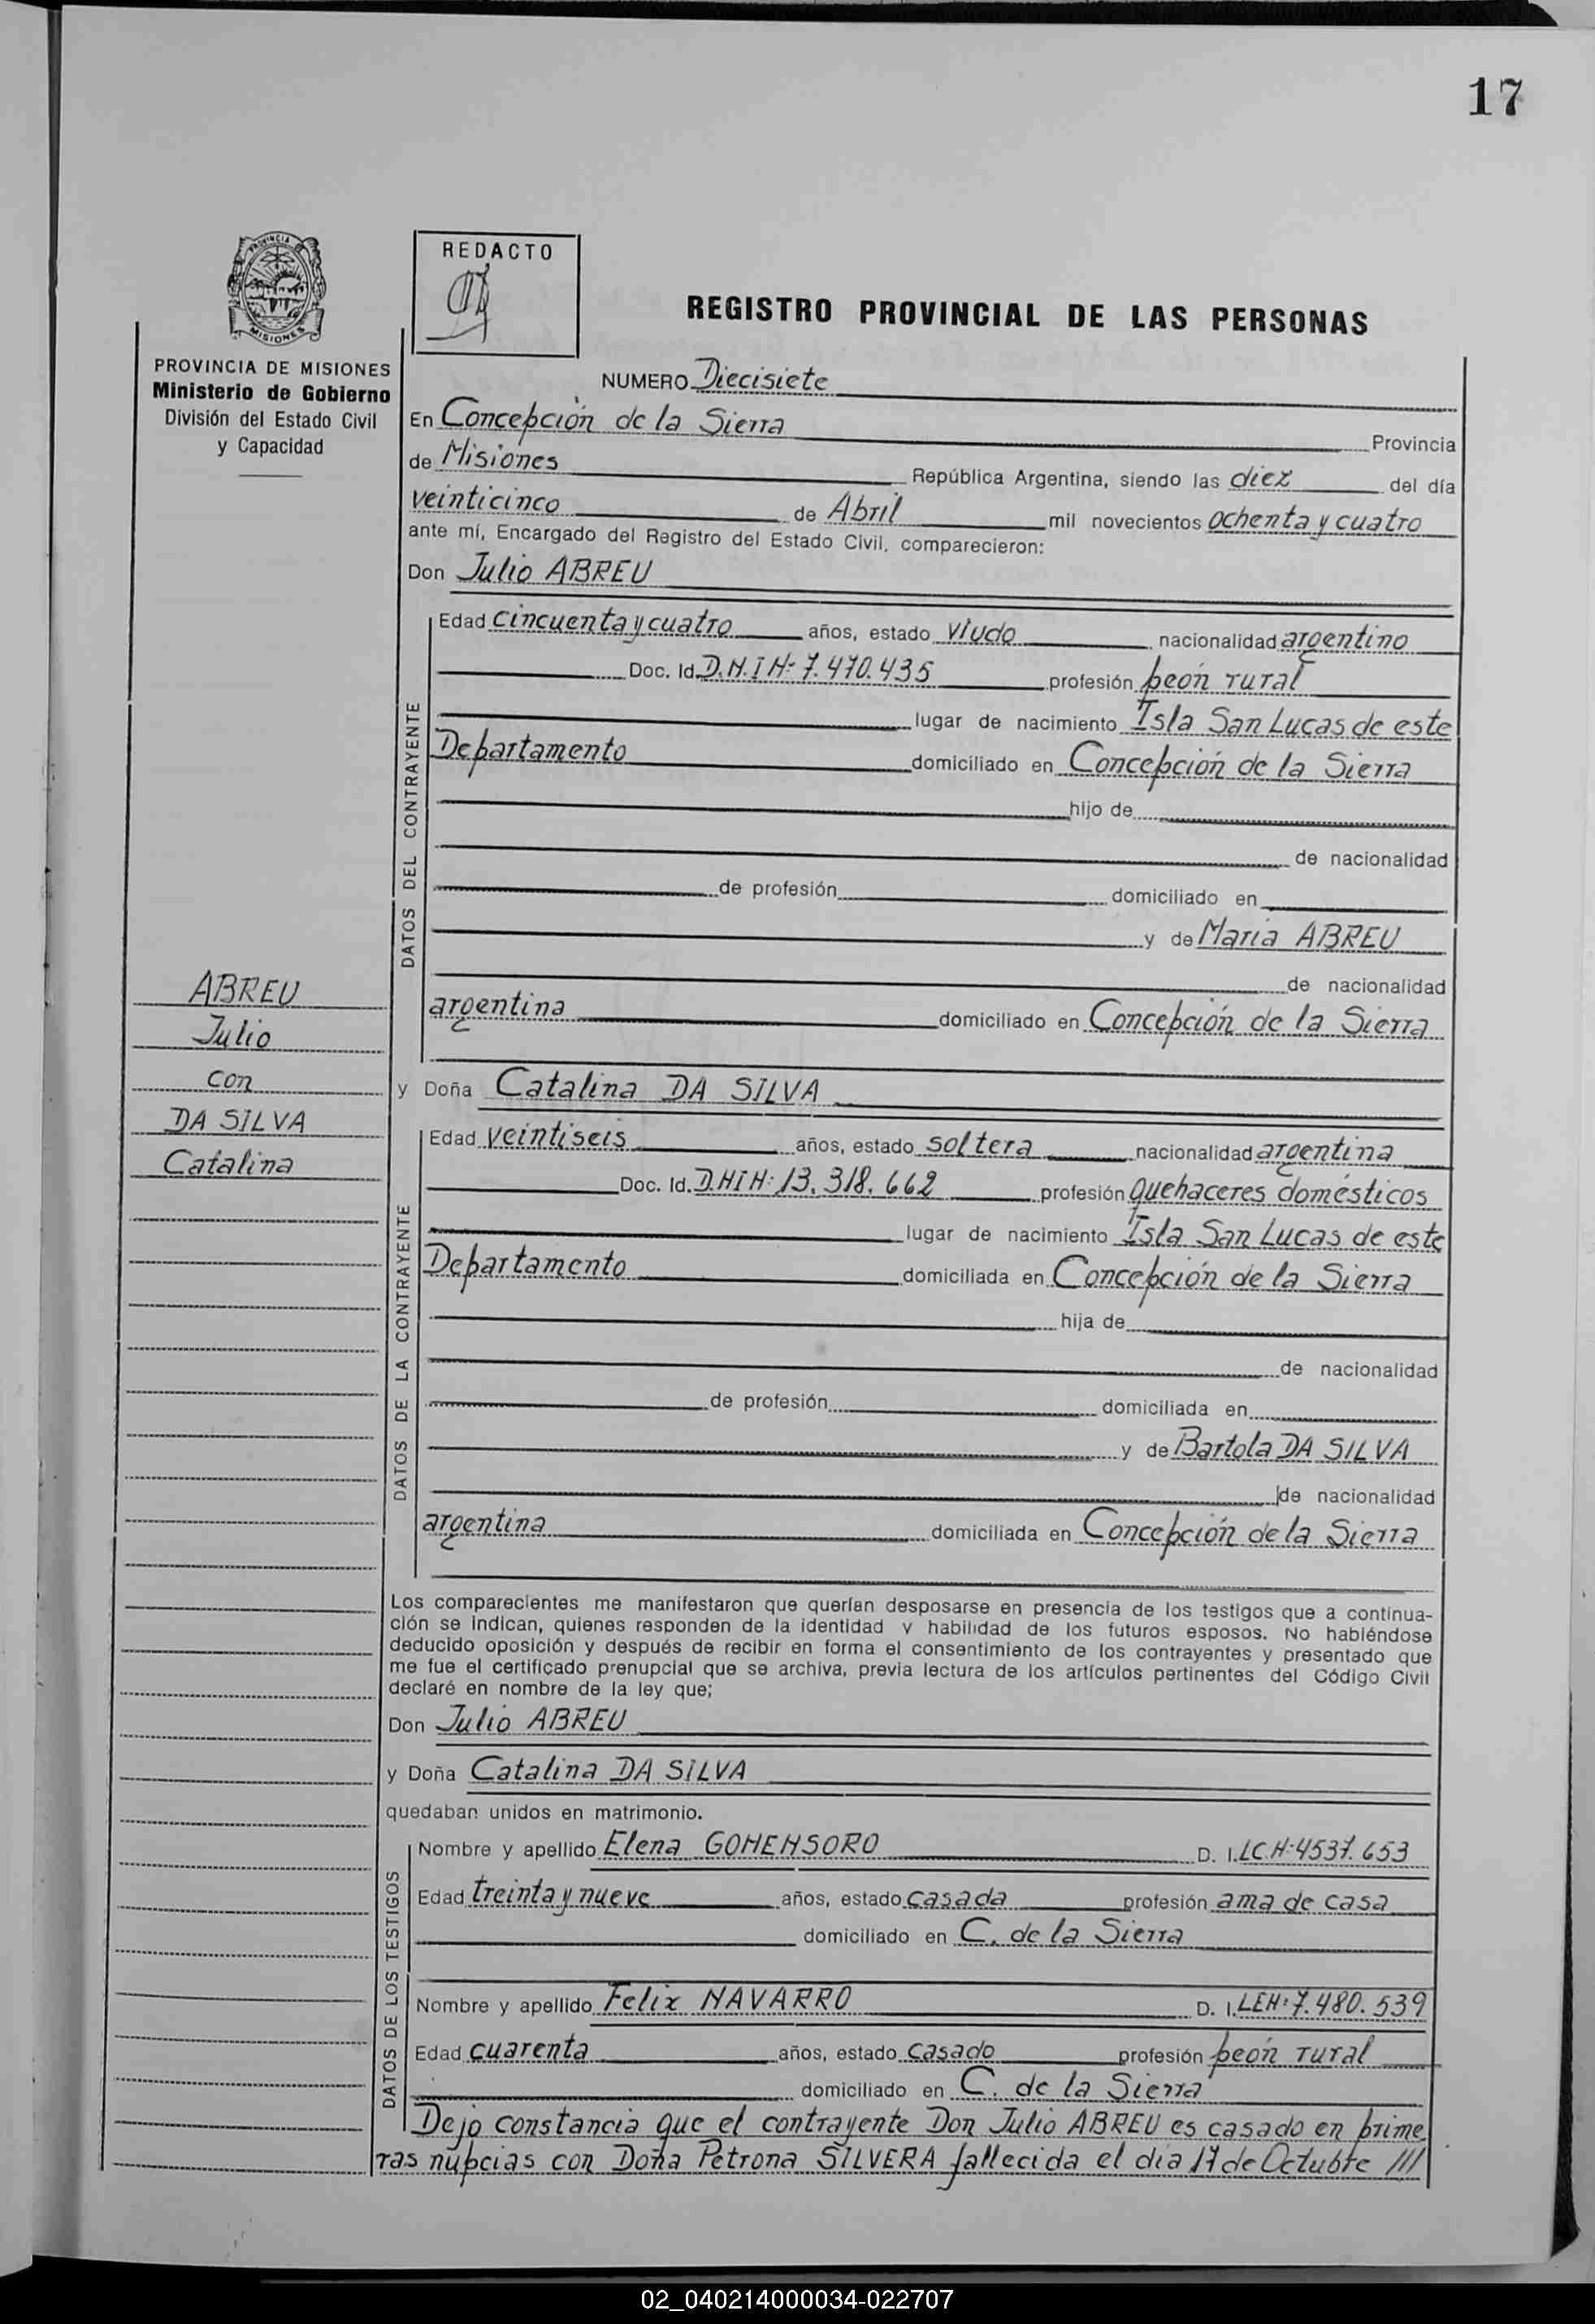 17
REDACTO
REGISTRO PROVINCIAL DE LAS PERSONAS
PROVINCIA DE MISIONES
Ministerio de Gobierno
División del Estado Civil
y Capacidad
NUMERO Diecisiete
En Concepción de la Sierra Provincia
de Misiones República Argentina, siendo las diez del día
veinticinco de Abril mil novecientos ochenta y cuatro
ante mí, Encargado del Registro del Estado Civil, comparecieron:
Don Julio ABREU
DATOS DEL CONTRAYENTE
Edad cincuenta y cuatro años, estado viudo nacionalidad argentino
Doc. Id. D.N.I Nº 7.470.435 profesión peón rural
lugar de nacimiento Isla San Lucas de este
Departamento domiciliado en Concepción de la Sierra
hijo de
de nacionalidad
de profesión domiciliado en
y de Maria ABREU
de nacionalidad
argentina domiciliado en Concepción de la Sierra
ABREU
Julio
con
DA SILVA
Catalina
y Doña Catalina DA SILVA
DATOS DE LA CONTRAYENTE
Edad veintiseis años, estado soltera nacionalidad argentina
Doc. Id. DNI Nº: 13.318.662 profesión quehaceres domésticos
lugar de nacimiento Isla San Lucas de este
Departamento domiciliada en Concepción de la Sierra
hija de
de nacionalidad
de profesión domiciliada en
y de Bartola DA SILVA
de nacionalidad
argentina domiciliada en Concepción de la Sierra
Los comparecientes me manifestaron que querían desposarse en presencia de los testigos que a continua-
ción se indican, quienes responden de la identidad y habilidad de los futuros esposos. No habiéndose
deducido oposición y después de recibir en forma el consentimiento de los contrayentes y presentado que
me fue el certificado prenupcial que se archiva, previa lectura de los artículos pertinentes del Código Civil
declaré en nombre de la ley que;
Don Julio ABREU
y Doña Catalina DA SILVA
quedaban unidos en matrimonio.
DATOS DE LOS TESTIGOS
Nombre y apellido Elena GOMENSORO D. I. LC Nº 4537.653
Edad treinta y nueve años, estado casada profesión ama de casa
domiciliado en C. de la Sierra
Nombre y apellido Felix NAVARRO D. I. LE Nº 7.480.539
Edad cuarenta años, estado casado profesión peón rural
domiciliado en C. de la Sierra
Dejo constancia que el contrayente Don Julio ABREU es casado en prime
ras nupcias con Doña Petrona SILVERA fallecida el día 17 de Octubre ///
02_040214000034-022707